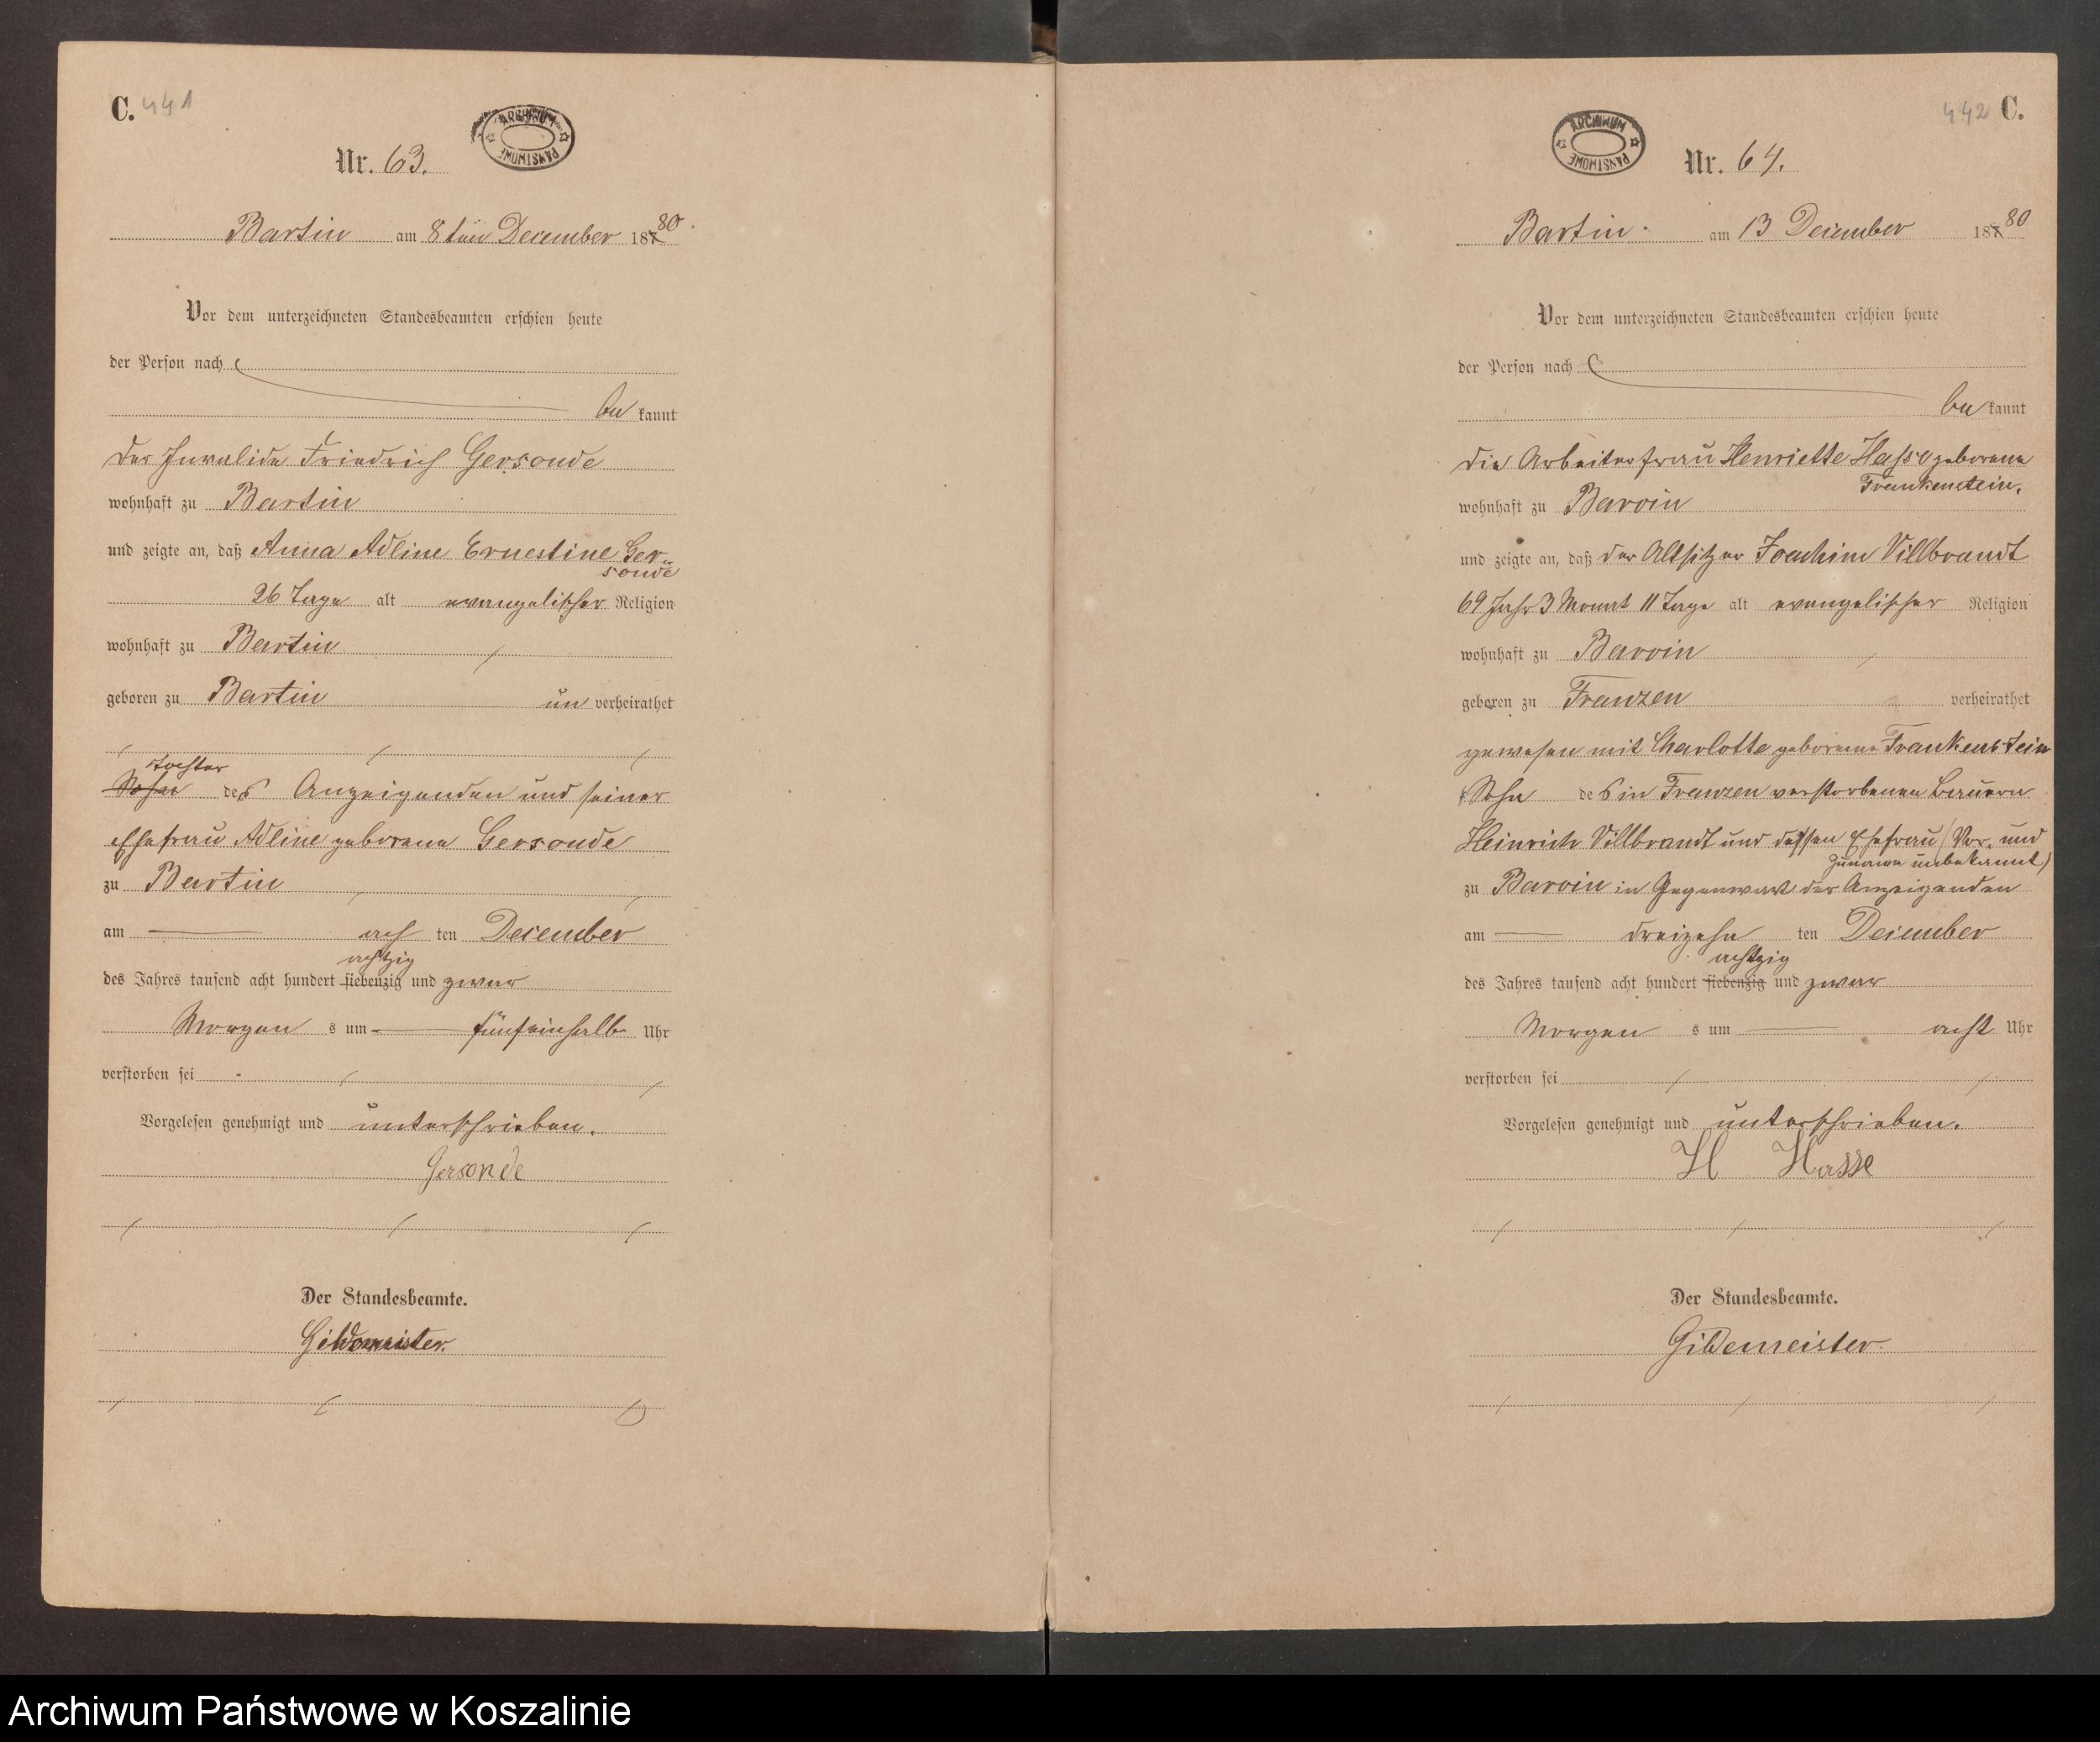 C. 441
ARCHIWUM PAŃSTWOWE
Nr. 63.
Bartin am 8ten December 1880.
Vor dem unterzeichneten Standesbeamten erschien heute
der Person nach
be kannt
der Invalide Friedrich Gersonde
wohnhaft zu Bartin
und zeigte an, daß Anna Adline Ernestine Ger-
sonde
26 Tage alt evangelischer Religion
wohnhaft zu Bartin
geboren zu Bartin un verheirathet
Tochter
Sohn des Anzeigenden und seiner
Ehefrau Adline geborene Gersonde
zu Bartin
am ach ten December
achtzig
des Jahres tausend acht hundert siebenzig und zwar
Morgen s um fünfeinhalb Uhr
verstorben sei
Vorgelesen genehmigt und unterschrieben.
Gersonde
Der Standesbeamte.
Gildemeister.
442 C.
ARCHIWUM PAŃSTWOWE
Nr. 64.
Bartin. am 13 December 1880
Vor dem unterzeichneten Standesbeamten erschien heute
der Person nach
be kannt
die Arbeiterfrau Henriette Hasse geborene
Frankenstein.
wohnhaft zu Barvin
und zeigte an, daß der Altsitzer Joachim Villbrandt
69 Jahr 3 Monat 11 Tage alt evangelischer Religion
wohnhaft zu Barvin
geboren zu Franzen verheirathet
gewesen mit Charlotte geborene Frankenstein
Sohn des in Franzen verstorbenen Bauern
Heinrich Villbrandt und dessen Ehefrau (Vor- und
Zuname unbekannt)
zu Barvin in Gegenwart der Anzeigenden
am dreizehn ten December
achtzig
des Jahres tausend acht hundert siebenzig und zwar
Morgen s um acht Uhr
verstorben sei
Vorgelesen genehmigt und unterschrieben.
H Hasse
Der Standesbeamte.
Gildemeister.
Archiwum Państwowe w Koszalinie